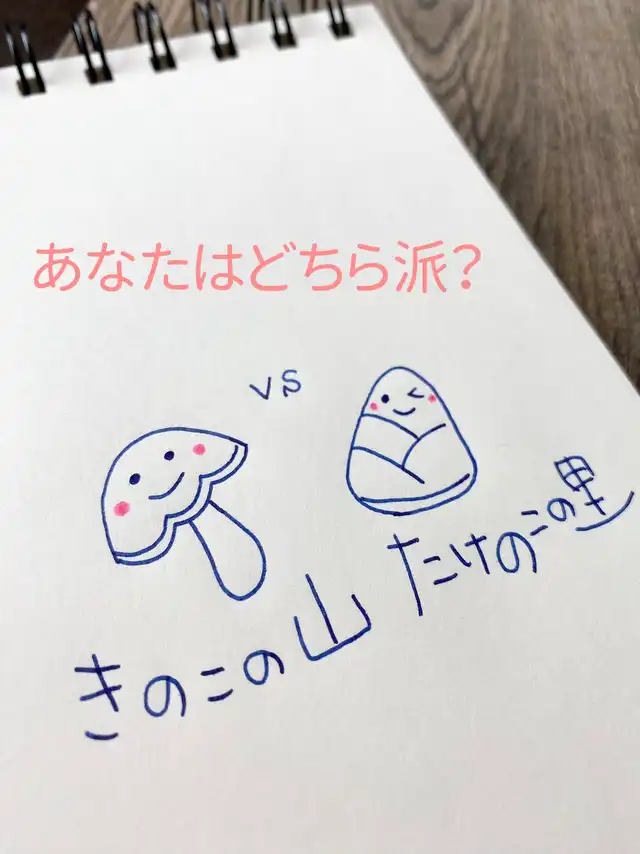 あなたはどちら派?
vs
きのこの山
たけのこの里